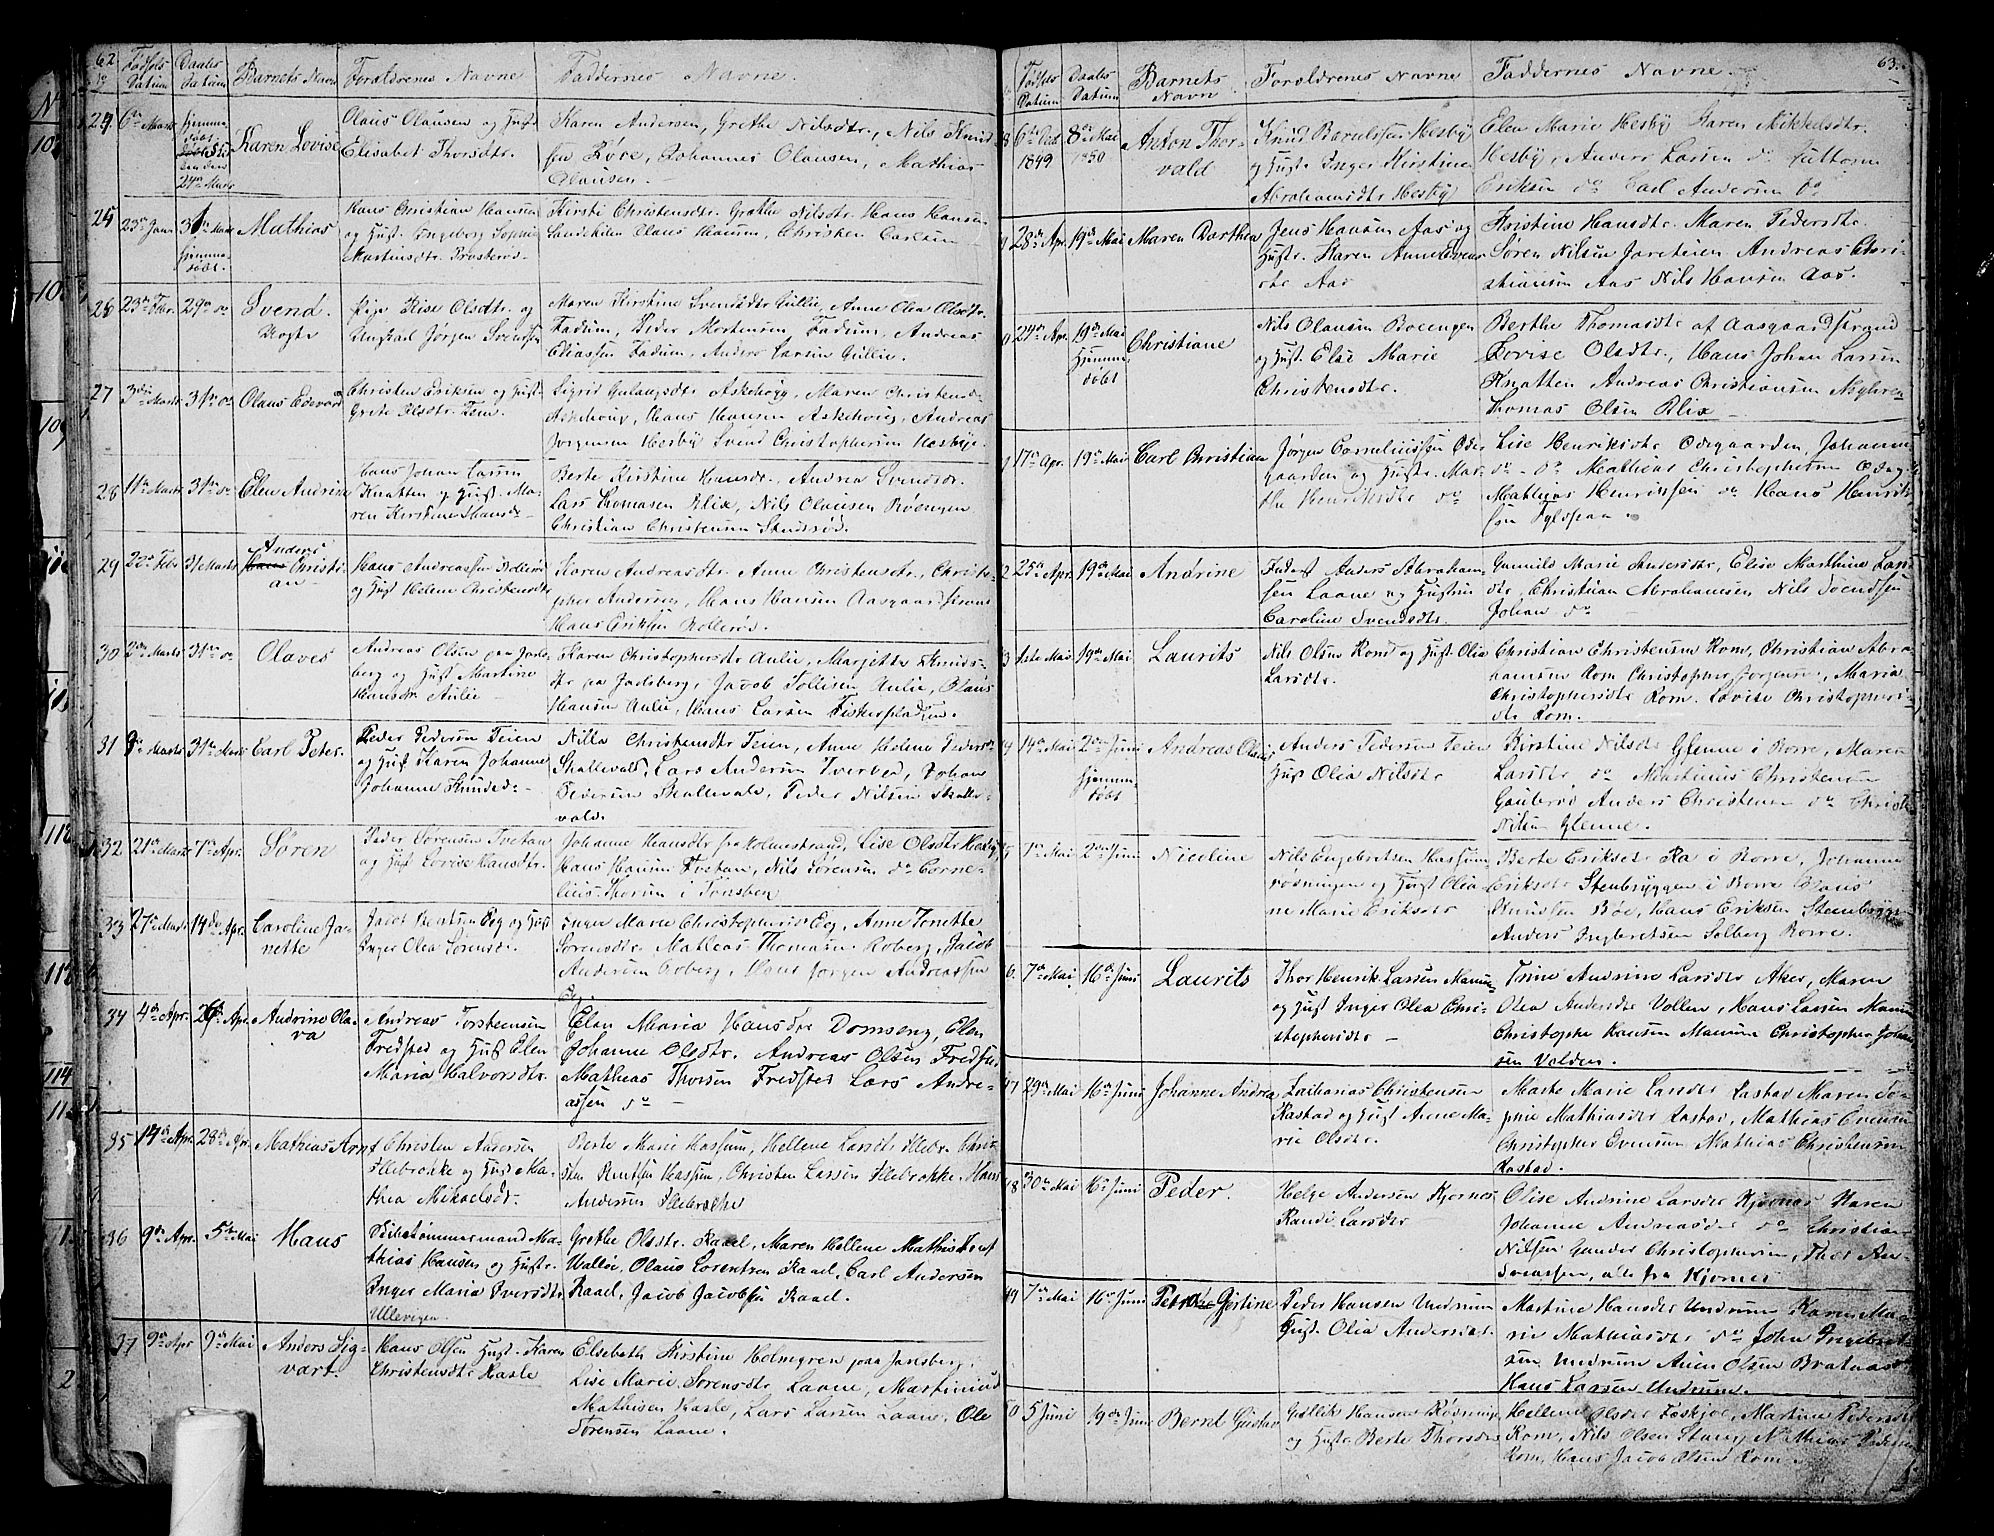 62
No Fødsels Datum Daabs Datum Barnets Navn Forældrenes Navne Faddernes Navne.
24 6te Marts hjemmedøbt 24de Marts Karen Lovise
Olaus Olausen og Hust.
Elisabet Thorsdtr.
Karen Andersen, Grethe Nilsdtr., Nils Knud-
sen Røre, Johannes Olausen, Mathias
Olausen.
25 23de Janr 31te Marts hjemmedøbt. Mathias
Hans Christian Hansen
og Hust. Ingeborg Sophie
Martinsdtr.
Kirsti Christensdtr. Grethe Nilsdtr. Hans Hansen
Olaus Hansen, Christen Carlsen
26 23de Febr. 29de do Svend. Uægte
Pige Lise Olsdtr. og
Ungkarl Jørgen Svendsen
Maren Kirstine Svendsdtr Gullie, Anne Olea Olsdtr.
Fadum, Peder Mortensen, Fadum, Andreas
Eliassen Fadum, Anders Larsen Gullie.
27 3die Marts 31te do Olaus Edevard
Christen Eriksen og Hust.
Grete Olsdtr. Tem.
Sigrid Gulaugsdtr Askehoug, Maren Christensd.
Askehoug, Hans Hansen Askehoug, Andreas
Jørgensen Hesby Svend Christophersen Hesbye.
28 11te Marts 31te do Elen Andrine
Hans Johan Larsen
Knatten og Hust. Ma-
ren Kirstine Hansdr
Berte Kirstine Hansdr., Andrea Svendsdr.
Lars Thomasen Blix, Nils Olausen Røengen
Christian Christensen Stensrød.
29 22de Febr 31 Marts Anders Christi-
an
Hans Andreassen Rollerød
og Hust Helene Christensdtr
Karen Andreasdtr. Anne Christensdtr., Christo-
pher Andersen, Hans Hansen Aasgaardstrand
Hans Eriksen Rollerød.
30 2den Marts 31te do Olaves
Andreas Olsen paa Jarls-
berg og Hust Martine
Hansdtr Aulie
Karen Christophersdtr Aulie, Margitte Knuds-
dtr paa Jarlsberg, Jacob Tollefsen Aulie, Olaus
Hansen Aulie, Hans Larsen Fiskerpladsen.
31 9de Marts 31te Marts Carl Peter.
Peder Pedersen Teien
og Hust Karen Johanne
Johanne Knudsd.
Nilla Christensdtr Teien, Anne Helene Pedersdr
Skallevald, Lars Andersen Tverved, Johan
Pedersen Skallevald, Peder Nilsen Skalle-
vald.
32 21de Marts 7de Apr. Søren
Peder Sørensen Tvetan
og Hust Lovise Hansdtr.
Johanne Hansdtr fra Holmestrand, Lise Olsdtr
Hans Hansen Tvetan, Nils Sørensen do Corne-
lius Thorsen i Tønsberg
33 27de Marts 14de Apr. Caroline Ja-
nette
Jacob Bentsen Eeg og Hust
Inger Olea Sørensdr.
Inger Marie Christophersdr Eeg, Anne Jonette
Sørensdtr. Mathias Thomasen Roberg, Jacob
Andersen Roberg, Hans Jørgen Andreassen
Eeg.
34 4de Apr. 26 Apr. Andrine Ola-
va
Andreas Torstensen
Fredsted og Hust Elen
Maria Halvorsdtr.
Elen Maria Hansdtr Domseng, Elen
Johanne Olsdtr. Andreas Olsen Fredsted
Mathias Thorsen Fredsted Lars Andre-
assen do
35 14de Apr. 28de Apr. Mathias Arnt
Christen Andersen
Slebrokke og Hust Ma-
thea Mikaelsdr.
Berte Marie Hassum, Hellene Larsdtr Slebr. Chri-
sten Knutsen Hassum, Christen Larsen Slebrokke Hans
Andersen Slebrokke
36 9de Apr. 5te Mai Hans
Skibstømmermand Ma-
thias Hansen og Hustr.
Inger Maria Iversdtr
Ullevigen
Grethe Olsdtr. Raael, Maren Hellene Mathisdr
Walløe, Olaus Lorentzen Raael, Carl Andersen
Raael, Jacob Jacobsen Raael.
37 9de Apr 9de Mai Anders Sig-
vart.
Hans Olsen Hust. Karen
Christensdtr Hasle
Elsebeth Kirstine Holmgren paa Jarlsberg,
Lise Marie Sørensdtr Laane, Martinius
Mathisen Hasle, Lars Larsen Laane, Ole
Sørensen Laane.
63.
Fødsels Datum Daabs Datum Barnets Navn Forældrenes Navne Faddernes Navne.
8 6te Oct. 1849 8de Mai 1850 Anton Thor-
vald
Knud Berulfsen Hesby
og Hust. Inger Kirstine
Abrahamsdtr Hesby
Elen Marie Hesby Karen Mikkelsdtr.
Hesby, Anders Larsen do
Eriksen do Carl Andersen do
9 28de Apr. 19de Mai Maren Dorthea
Jens Hansen Aas og
Hustr. Karen Anne
Aas
Kristine Hansdtr. Maren Pedersdtr.
Søren Nilsen Jareteien Andreas Chri-
stiansen Aas Nils Hansen Aas.
0 24de Apr. 19de Mai Hjemmedøbt Christiane
Nils Olausen Roeengen
og Hust. Else Marie
Christensdtr.
Berthe Thomasdtr af Aasgaardstrand
Lovise Olsdtr., Hans Johan Larsen
Knatten Andreas Christiansen
Thomas Olsen Blix
1 17de Apr. 19de Mai Carl Christian
Jørgen Corneliussen Ode-
gaarden og Hustr. Mar-
the Henriksdtr do
Lise Henriksdtr Odegaarden, Johanne
do do Mathias Christophersen Odeg.
Mathias Henriksen do Hans Henrik-
sen Fylspaa.
2 25de Apr. 19de Mai Andrine
Inderst Anders Abraham-
sen Laane og Hustru
Caroline Svendsdtr.
Gunild Marie Andersdtr, Elise Marthine Lars-
dtr, Christian Abrahamsen Nils Svendsen
Johan do
3 1ste Mai 19de Mai Laurits
Nils Olsen Rom og Hust Olia
Larsdtr.
Christian Christensen Rom, Christian Abra-
hamsen Rom Christopher Jørgensen, Maria
Christophersdtr Rom. Lovise Christophers-
dtr Rom.
4 14de Mai 2den Juni hjemmedøbt Andreas Olaus
Anders Pedersen Teien
Hust Olia Nilsdtr
Kirstine Nilsdtr Glenne i Borre, Maren
Larsdtr do Martinus Christensen
Gauterød Anders Christensen do Christ.
Nilsen Glenne.
5 1ste Mai 2den Juni Nicoline
Nils Engebretsen Hassum-
røsningen og Hust Olia-
ne Marie Eriksdtr
Berte Eriksdtr Ra i Borre, Johanne
Eriksdtr Stenbryggen i Borre Olaus
Knutsen Bøe, Hans Eriksen Stenbryggen
Anders Ingbretsen Solberg Borre.
6. 7de Mai 16de Juni Laurits
Thor Henrik Larsen Manum
og Hust Inger Olea Chri-
stophersdtr
Trine Andrine Larsdtr Aker, Maren
Olea Andersdtr Vollen, Hans Larsen Manum
Christopher Hansen Manum Christopher Johan-
sen Valden.
47 29de Mai 16de Juni Johanne Andrea
Zacharias Christensen
Rastad og Hust Anne Ma-
rie Olsdtr.
Marte Marie Larsdtr Rastad Maren So-
phie Mathiasdtr Rastad, Mathias Evensen
Christopher Evensen Mathias Christensen
Rastad.
48 30te Mai 16de Juni Peder.
Helge Andersen Kjørnes
Randi Larsdtr
Olise Andrine Larsdtr Kjørnes Karen
Johanne Andreasdtr do Christian
Nilsen Gunder Christophersen, Thor An-
dreassen, alle fra Kjørnes
49 7de Mai 16de Juni Petrine Gjøstine
Peder Hansen Undrum
Hust. Olia Andersdtr.
Martine Hansdtr Undrum Karen Ma-
rie Mathiasdtr do John Ingebret-
sen Undrum Aven Olsen Bratnas
Hans Larsen Undrum.
50 5 Juni 19de Juni Bernt Gustav
Gullik Hansen Røsningen
og Hustr. Berte Thorsdtr
Hellene Olsdtr Foskjøe, Martine Pedersdtr
Rom, Nils Olsen Stang, Mathias Peders.
Rom, Hans Jacob Olsen Rom.